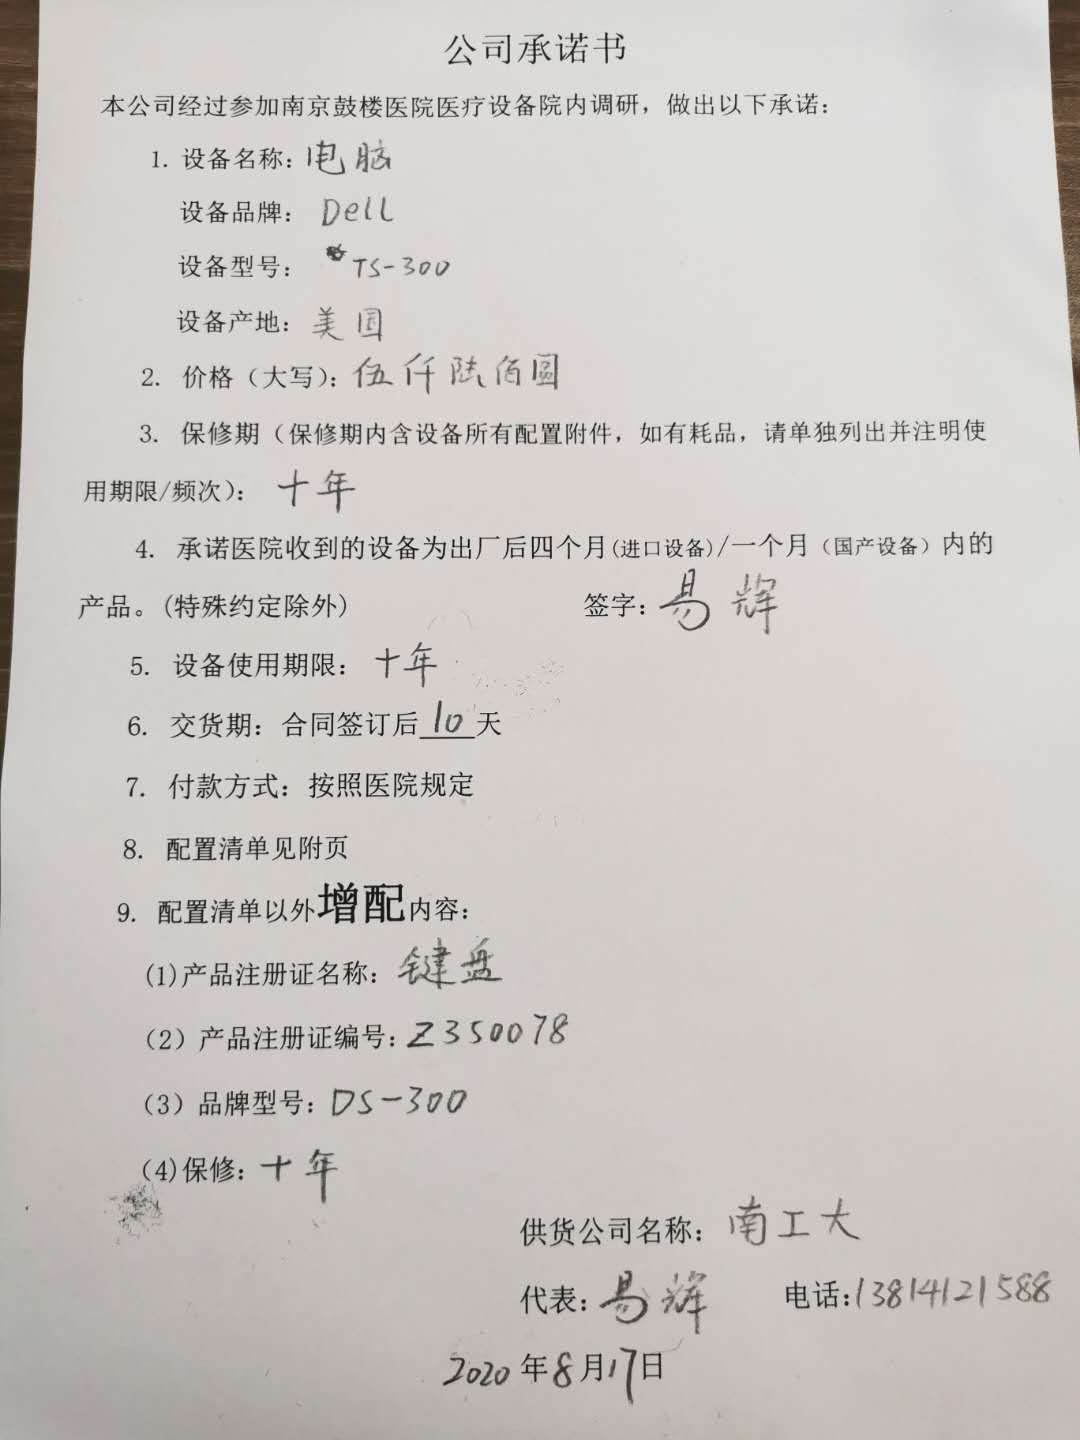 公司承诺书
本公司经过参加南京鼓楼医院医疗设备院内调研，做出以下承诺：
1. 设备名称：电脑
设备品牌： Dell
设备型号： TS-300
设备产地：美国
2. 价格（大写）：伍仟陆佰圆
3. 保修期（保修期内含设备所有配置附件，如有耗品，请单独列出并注明使
用期限/频次）： 十年
4. 承诺医院收到的设备为出厂后四个月(进口设备)/一个月（国产设备）内的
产品。(特殊约定除外) 签字：易辉
5. 设备使用期限： 十年
6. 交货期：合同签订后10天
7. 付款方式：按照医院规定
8. 配置清单见附页
9. 配置清单以外增配内容：
(1)产品注册证名称：键盘
（2）产品注册证编号：Z350078
（3）品牌型号：DS-300
（4)保修：十年
供货公司名称：南工大
代表：易辉 电话：13814121588
2020年8月17日